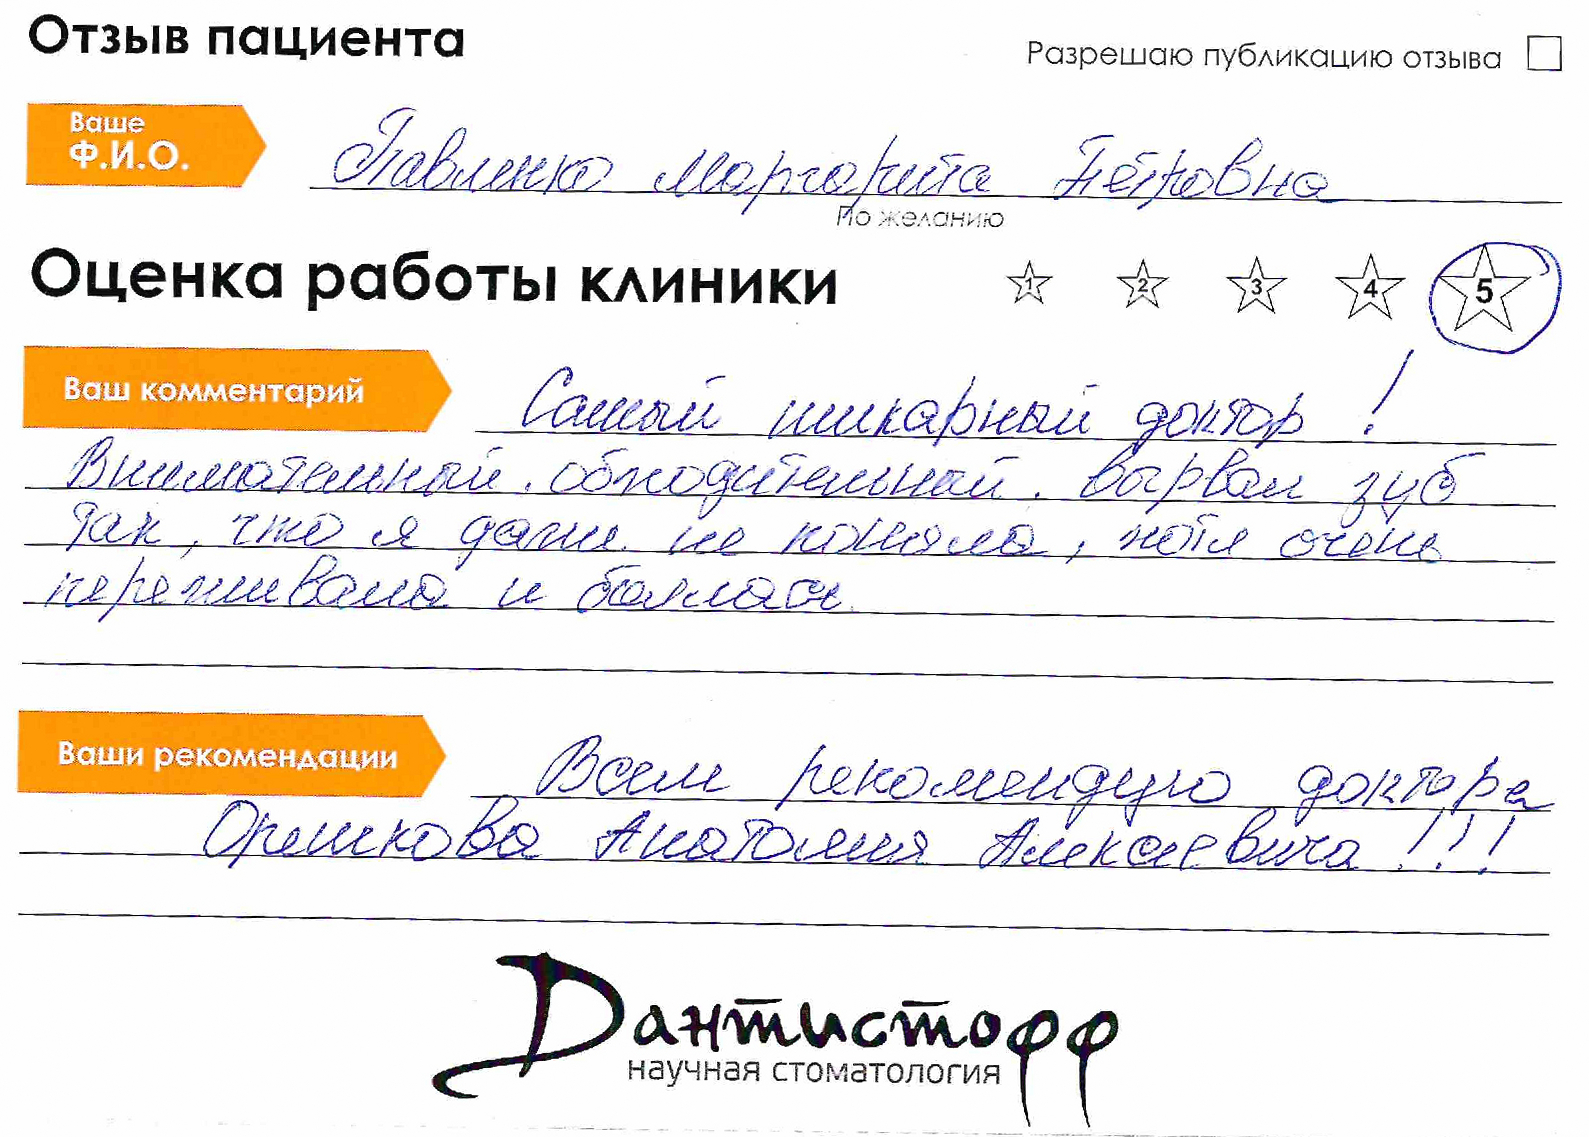 Отзыв пациента
Разрешаю публикацию отзыва
Ваше
Ф.И.О.
Павленко Маргарита Петровна
По желанию
Оценка работы клиники
1 2 3 4 5
Ваш комментарий
Самый шикарный доктор!
Внимательный, обходительный, вырвал зуб
так, что я даже не поняла, хотя очень
переживала и боялась.
Ваши рекомендации
Всем рекомендую доктора
Орешкова Анатолия Алексеевича!!!
Дантистофф
научная стоматология